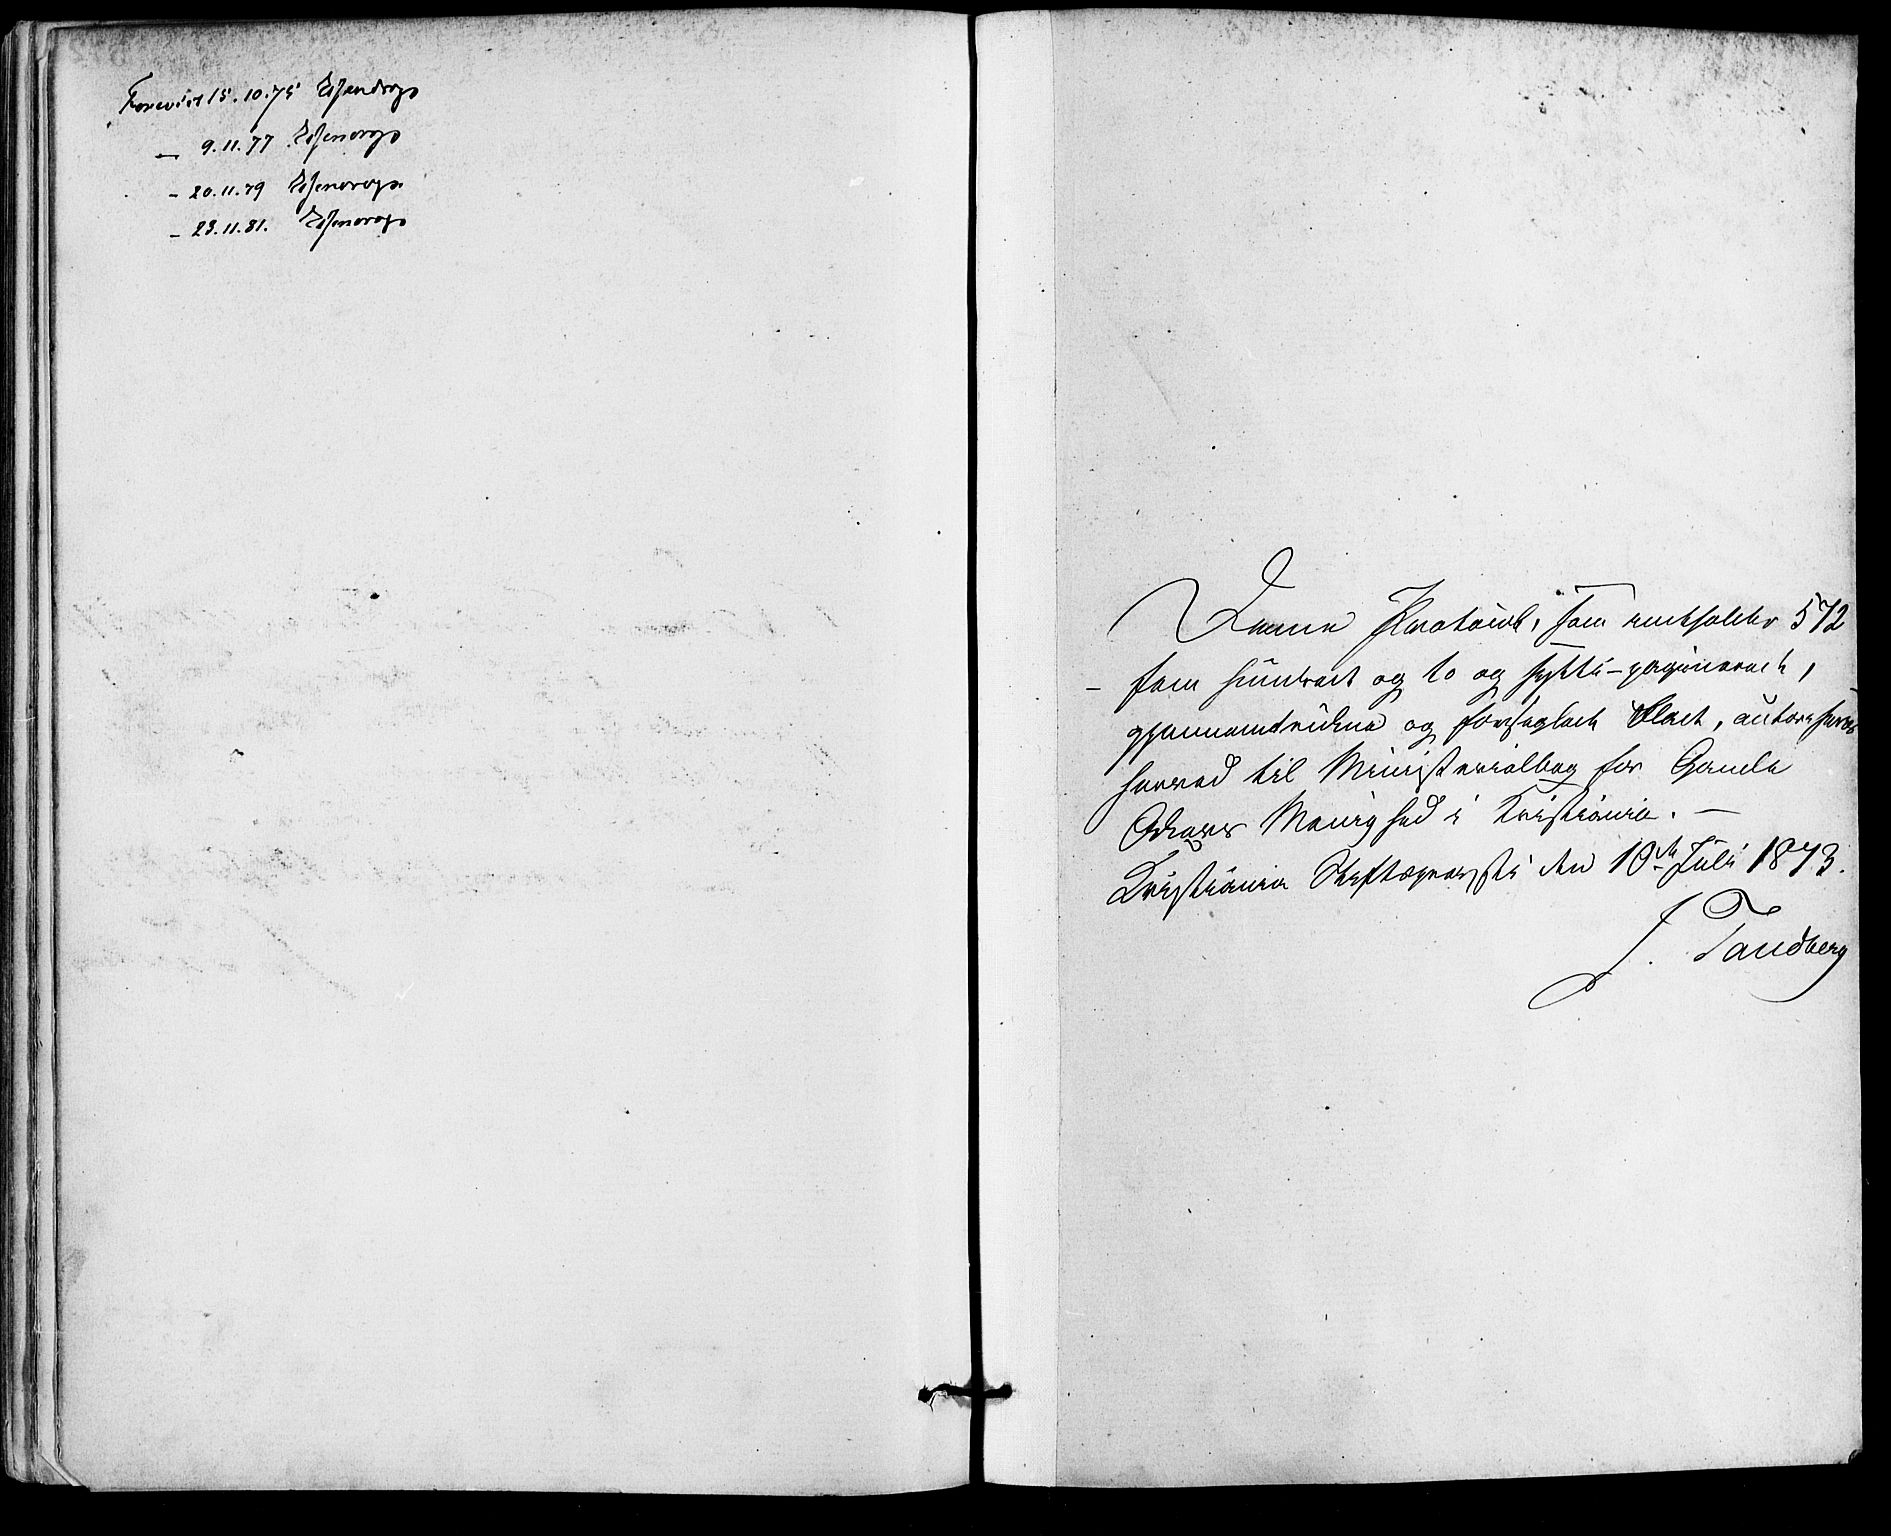 Forevist 15.10.75 Essendrop
— 9.11.77 Essendrop
- 20.11.79 Essendrop
- 23.11.81. Essendrop
Denne Protocol, som indeholder 572
- fem hundrede og to og sytti - paginerede,
gjennemtrukne og forseglede Blade, autoriseres
herved til Ministerialbog for Gamle
Akers Menighed i Kristiania. —
Kristiania Stiftsprovsti den 10de Juli 1873.
J. Tandberg